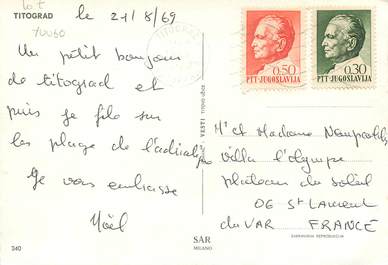 Lot
70060
TITOGRAD
le 21/8/69
Un petit bonjour
de titograd et
puis je file sur
les plage de l'adriatique
Je vous embrasse
Noël
340
SAR
MILANO
VESTI
TITOGRAD
0.50
PTT JUGOSLAVIJA
0.30
PTT-JUGOSLAVIJA
Mr et Madame
villa l'olympe
plateau du soleil
06 St Laurent
du VAR FRANCE